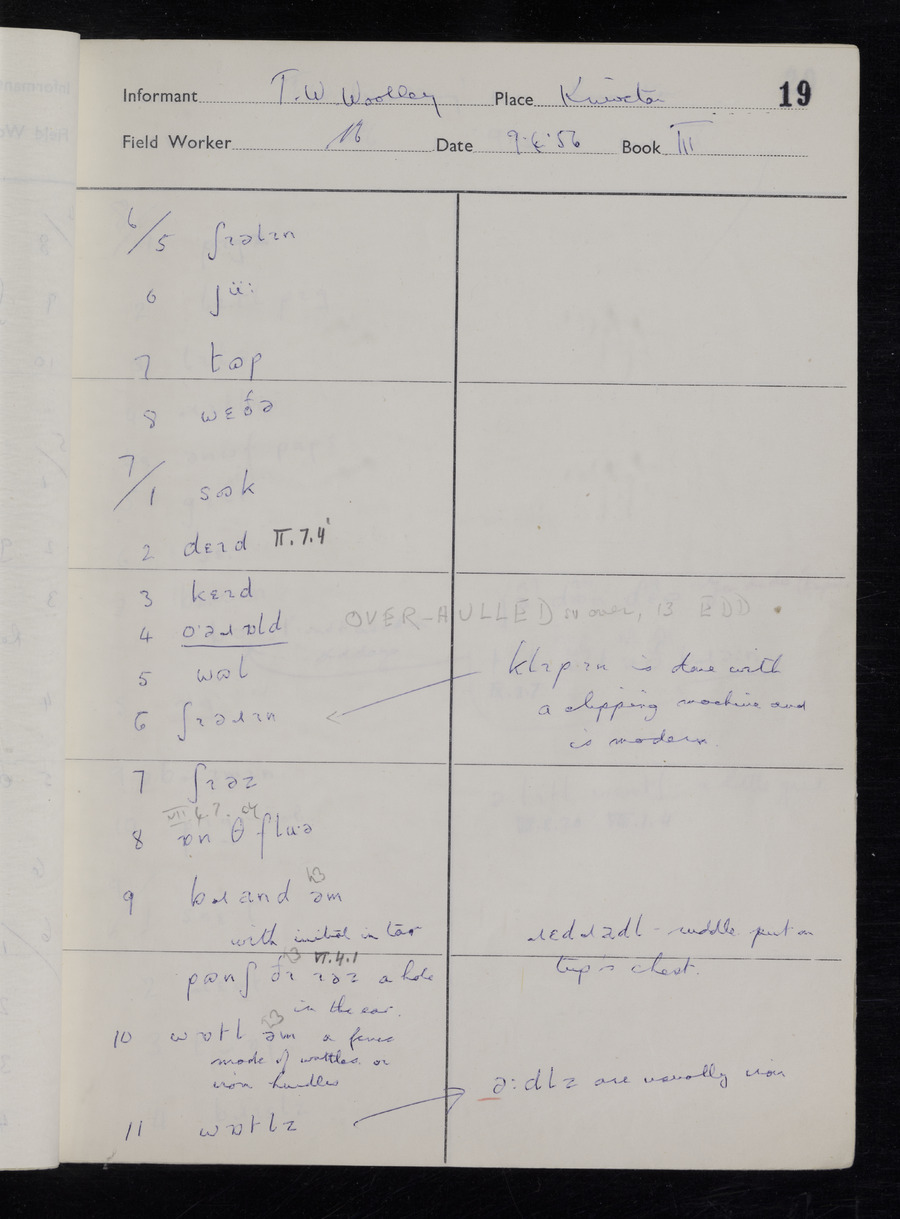 19
Informant T. W Woolley Place Kineton
Field Worker Date 9·4·56 Book III
6/5 ʃɪəlɪn
6 ʃü:
7 tɷp
8 wɛðə
7/1 sɷk
2 dɛɪd II.7.4
3 kɛɪd
OVER-HULLED sv over, 13 EDD
4 o·əɹɒld
5 wɷl
klɪp·ɪn is done with
a clipping machine and
is modern.
6 ʃɪəɹɪn
7 ʃɪəz
VII 4.7.
8 ɒn θ flu·ə
9 bɹand əm
with initial in tar
ɹɛdɹədl - ruddle put on
tup's chest.
VI.4.1
pɷnʃ ðɪ ɪəz a hole
in the ear.
10 wɒtl əm a fence
made of wattles or
iron hurdles
ə:dlz are usually iron
11 wɒtlz